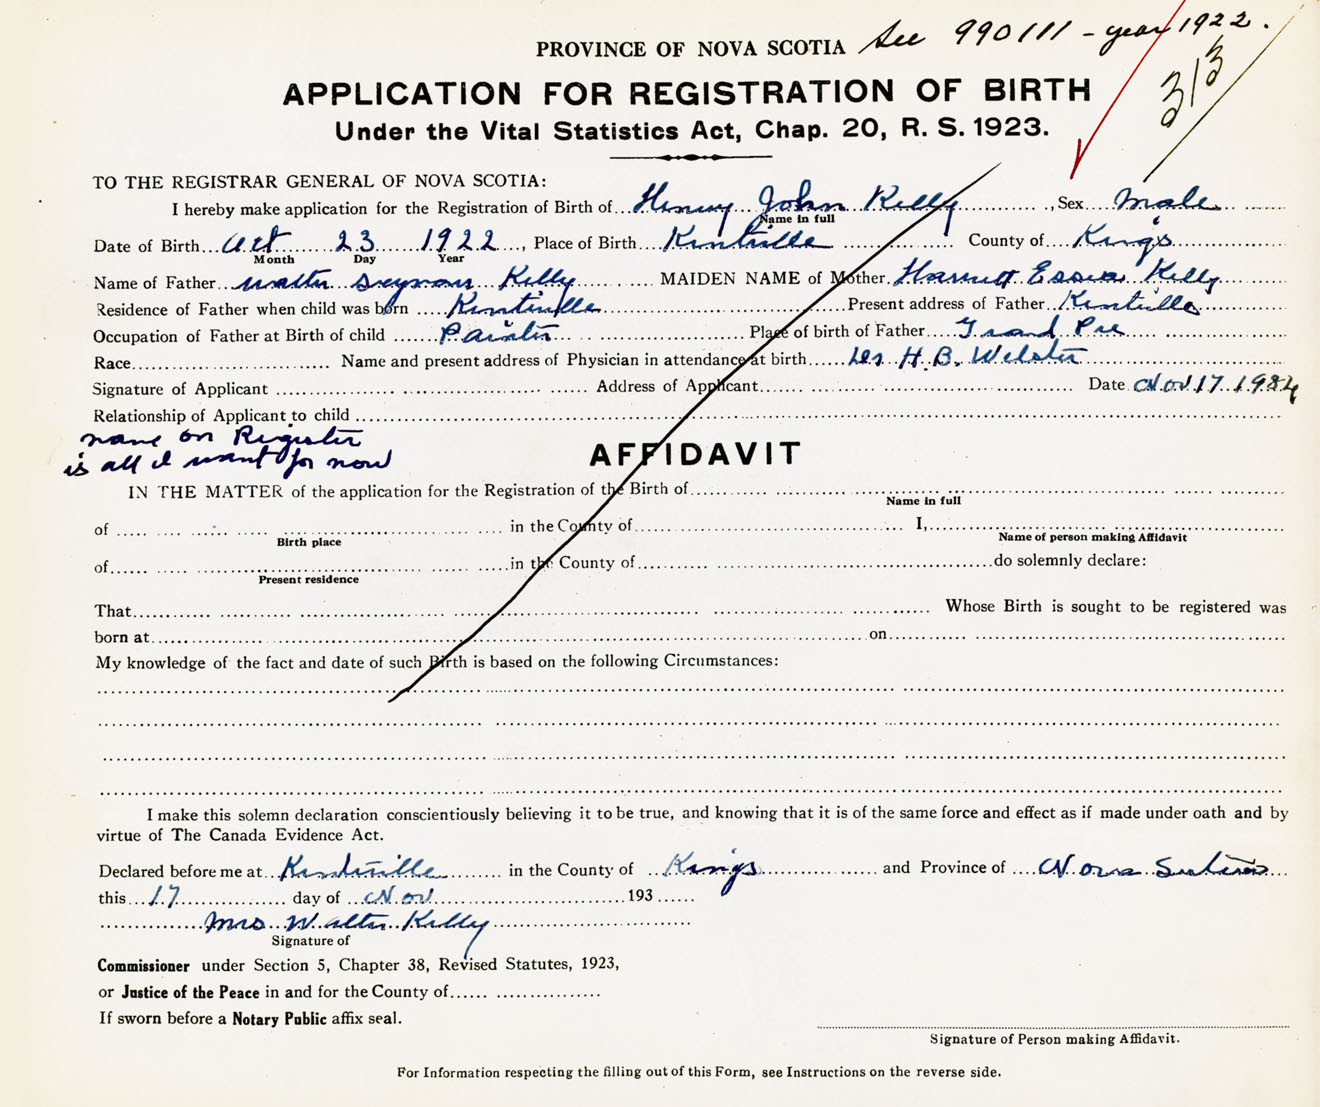 PROVINCE OF NOVA SCOTIA See 990111 - year 1922.
313
APPLICATION FOR REGISTRATION OF BIRTH
Under the Vital Statistics Act, Chap. 20, R. S. 1923.
TO THE REGISTRAR GENERAL OF NOVA SCOTIA:
I hereby make application for the Registration of Birth of Henry John Kelly, Sex Male
Name in full
Date of Birth Oct 23 1922, Place of Birth Kentville County of Kings
Month Day Year
Name of Father Walter Seymour Kelly MAIDEN NAME of Mother Harriett Kelly
Residence of Father when child was born Kentville Present address of Father Kentville
Occupation of Father at Birth of child Painter Place of birth of Father Grand Pre
Race Name and present address of Physician in attendance at birth H. B. Webster
Signature of Applicant Address of Applicant Date Nov 17
Relationship of Applicant to child
name on Register
is all I want for now
AFFIDAVIT
IN THE MATTER of the application for the Registration of the Birth of
Name in full
of in the County of I,
Birth place Name of person making Affidavit
of in the County of do solemnly declare:
Present residence
That Whose Birth is sought to be registered was
born at on
My knowledge of the fact and date of such Birth is based on the following Circumstances:
I make this solemn declaration conscientiously believing it to be true, and knowing that it is of the same force and effect as if made under oath and by
virtue of The Canada Evidence Act.
Declared before me at Kentville in the County of Kings and Province of Nova Scotia
this 17 day of Nov 193
Mrs Walter Kelly
Signature of
Commissioner under Section 5, Chapter 38, Revised Statutes, 1923,
or Justice of the Peace in and for the County of
If sworn before a Notary Public affix seal.
Signature of Person making Affidavit.
For Information respecting the filling out of this Form, see Instructions on the reverse side.